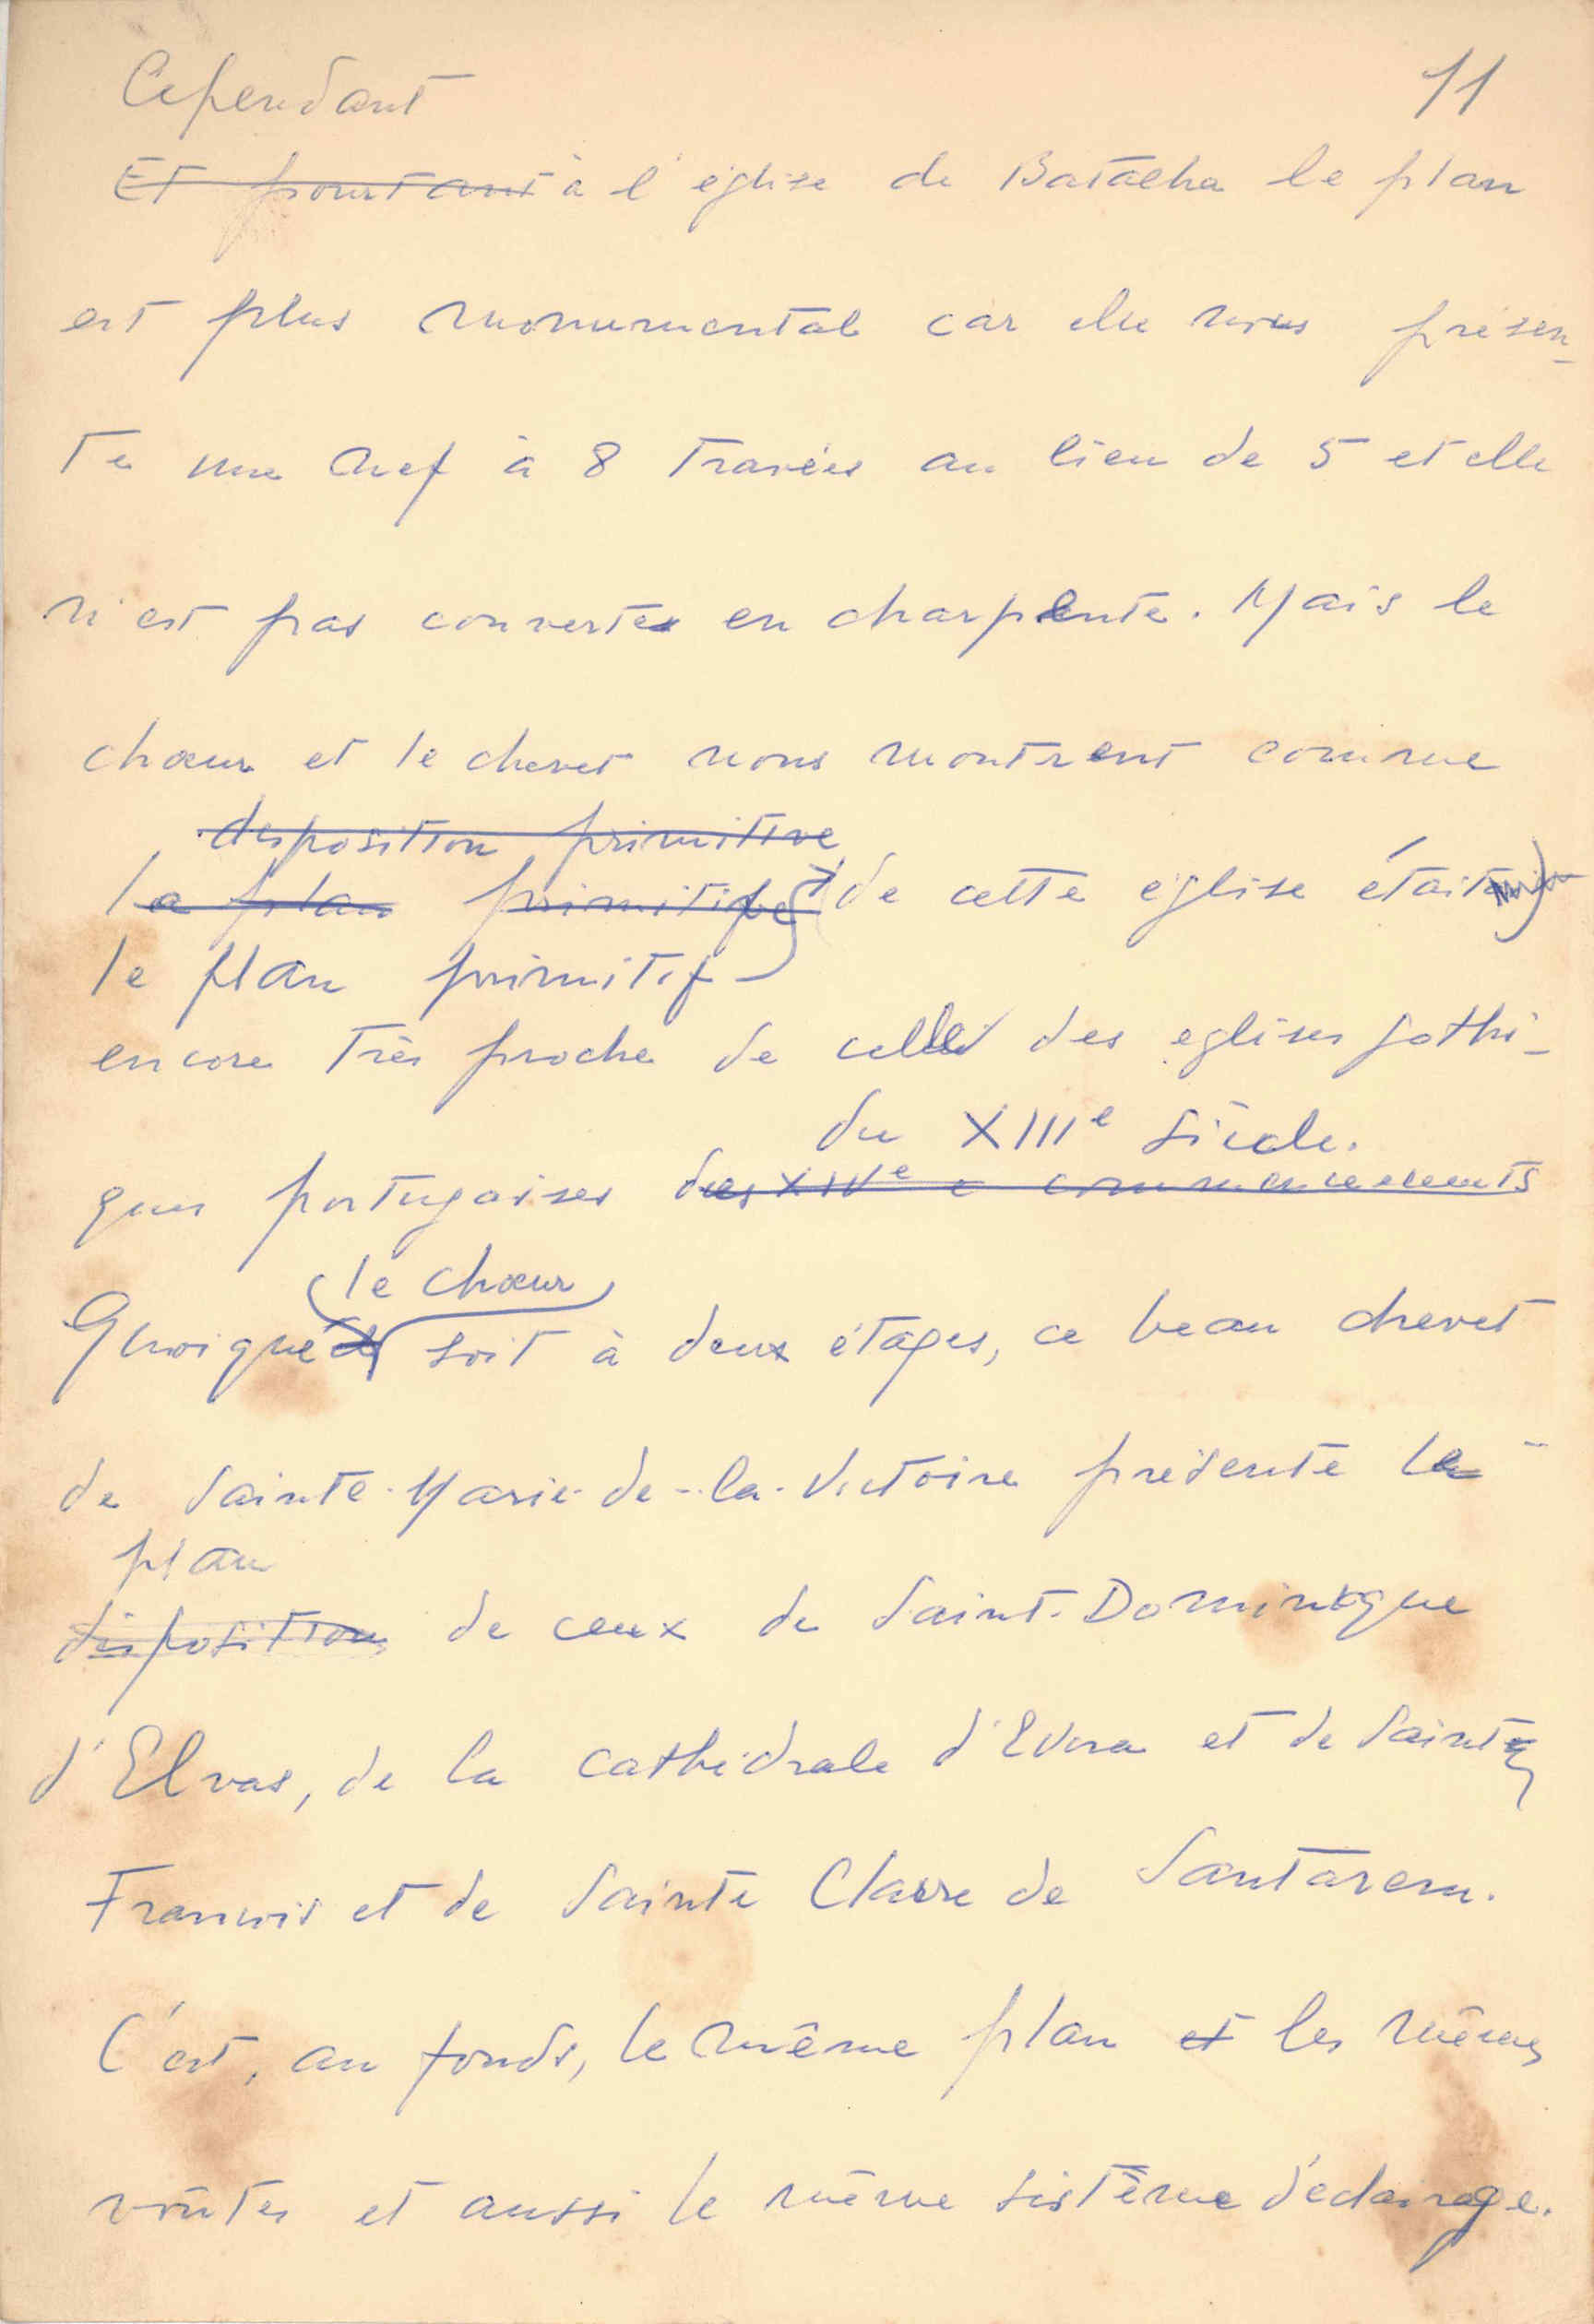 Cependant 11
Et pourtant à l'église de Batalha le plan
est plus monumental car elle nous présen-
te une nef à 8 travées au lieu de 5 et elle
n'est pas couverte en charpente. Mais le
chœur et le chevet nous montrent comme
disposition primitive
la plan primitive de cette église était
le plan primitif
encore très proche de celle des eglises gothi-
ques portugaises du XIIIe siècle.
des XIVe e commencements
le chœur
Quoique soit à deux étages, ce beau chevet
de Sainte-Marie-de-la-Victoire présente le
plan
disposition de ceux de Saint-Dominique
d'Elvas, de la cathédrale d'Evora et de Saint
François et de Sainte Claire de Santarem.
C'est, au fonds, le même plan et les mêmes
voûtes et aussi le même sistème d'éclairage.